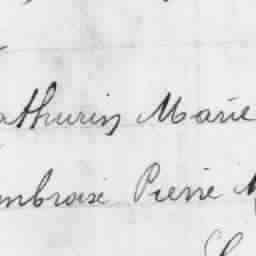 athurin Marie
mbroise Pierre